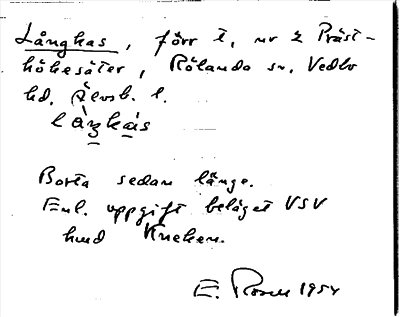 Långkas, förr t. nr 2 Präst-
hökesäter, Rölanda sn, Vedbo
hd. Älvsb. l.
làŋkás
Borta sedan länge.
Enl. uppgift beläget VSV
hmd
E. Rosell 1954